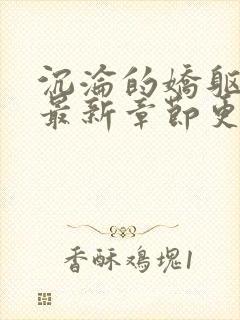 沉沦的娇躯
最新章节更
香酥鸡块1